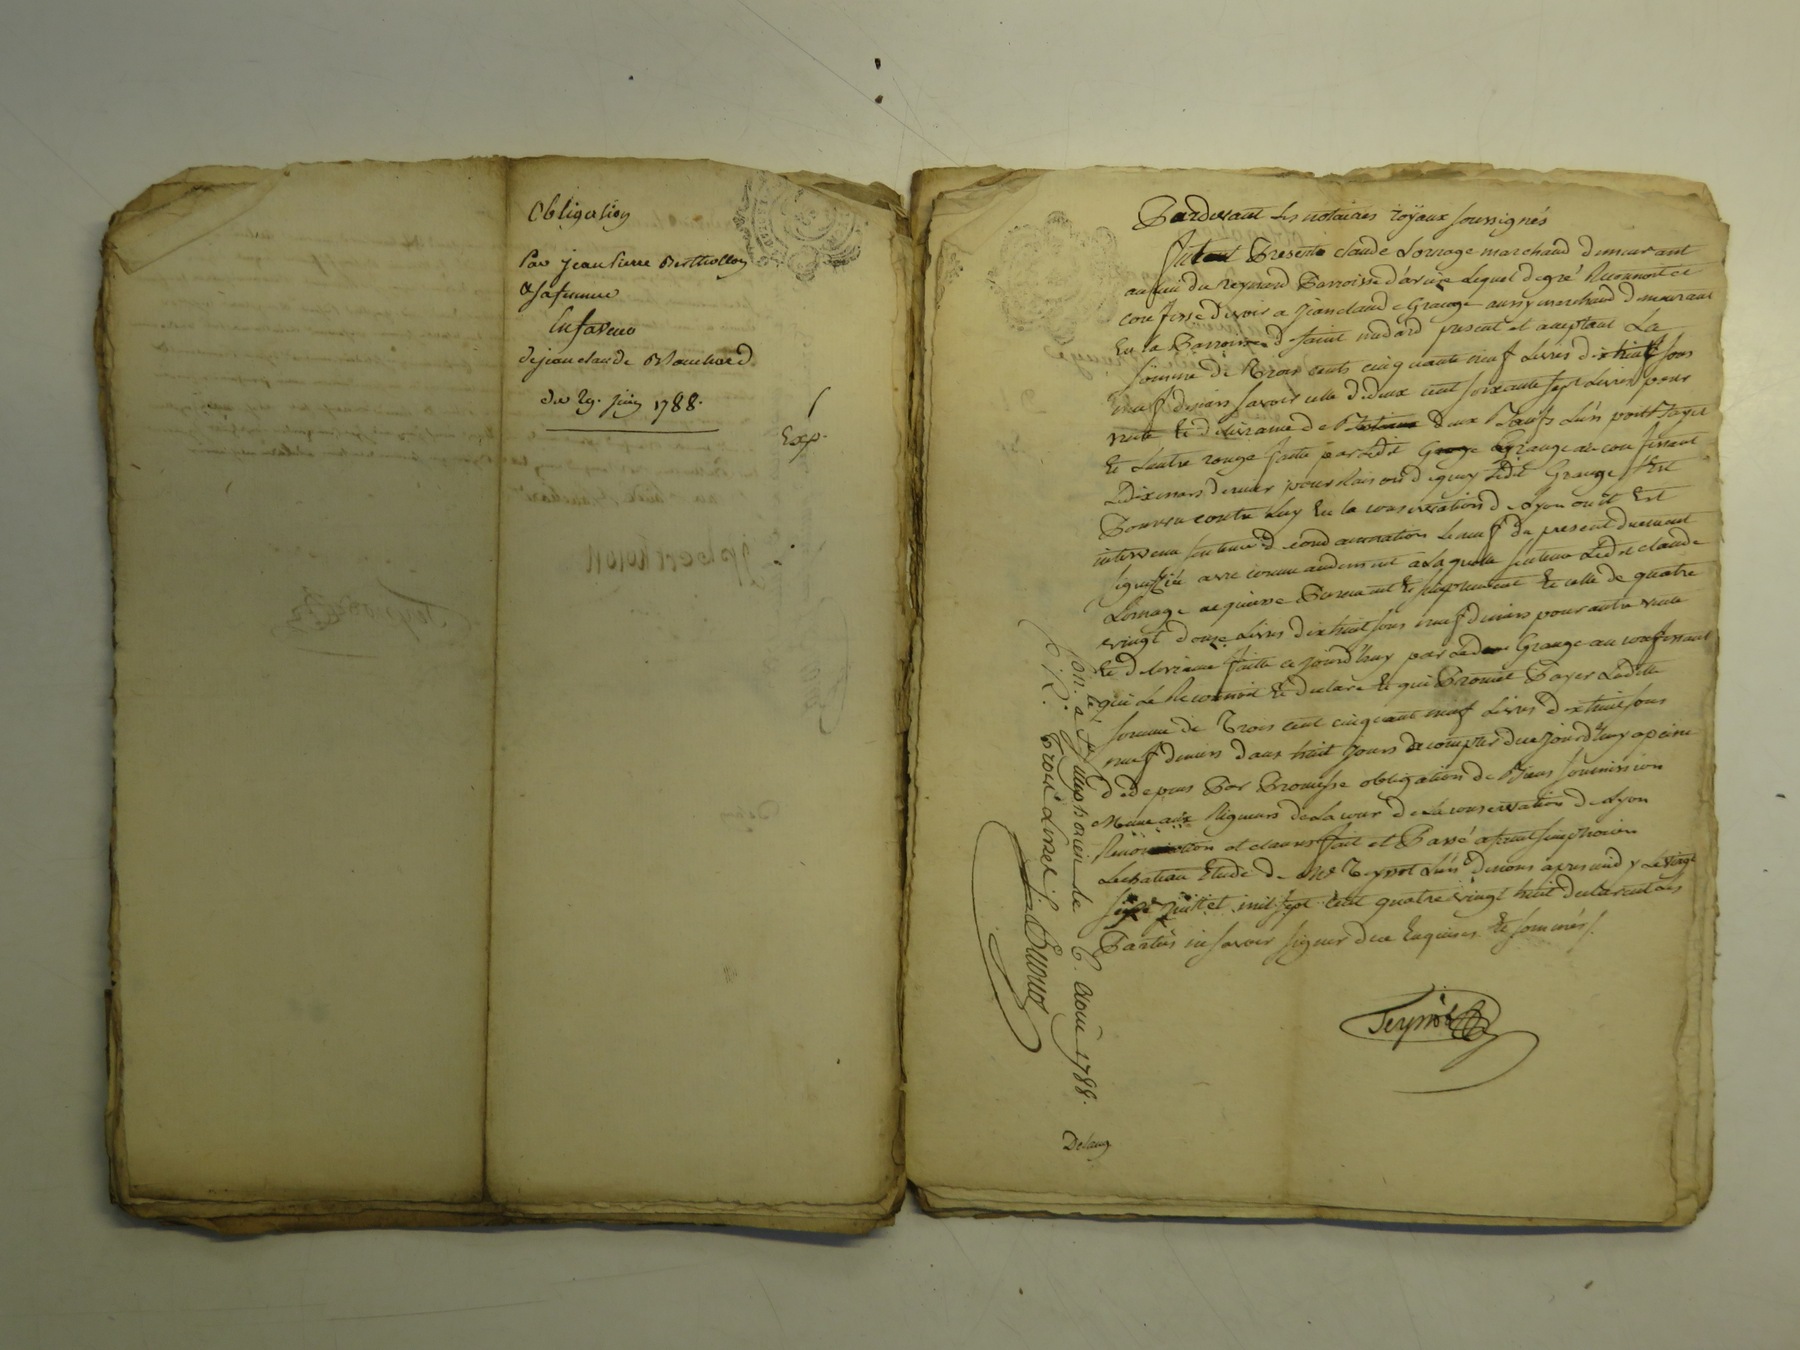 Obligation
Par jean Pierre Berthollon
& sa femme
En faveur
de jean claude Blanchard
du 29. juin 1788.
Exp.
Pardevant les notaires royaux soussignés
fut Present claude Lornage marchand demeurant
au lieu du Reynard Parroisse d'aveize Lequel de gré Reconnoit et
confesse devoir a jean claude Grange aussy marchand demeurant
En la Parroisse de saint medard present et acceptant La
somme de Trois cents cinquante neuf Livres dix huit sous
neuf deniers savoir celle de deux cent soixante sept Livres pour
vente et delivrance de deux Bœufs L'un poil
et Lautre rouge faitte par Ledit Grange au confessant
Le dix mars dernier pour Raison de quoy Ledit Grange s'est
Pourvu contre Luy En la conservation de Lyon ou il Est
intervenu sentence de condamnation Le neuf du present duement
signiffiée avec commandement a Laquelle sentence Ledit claude
Lornage acquiesse Purement et simplement et celle de quatre
vingt douze Livres dix huit sous neuf deniers pour autre vente
et delivrance faitte ce jourd'huy par Ledit Grange au confessant
qui Le Reconnoit et declare et qui Promet Payer Laditte
somme de Trois cent cinquante neuf Livres dix huit sous
neuf deniers dans huit jours a compter de ce jourd'huy a peine
de depens Par Promesse obligation de Biens soumission
Meme aux Rigueurs de La cour de La conservation de Lyon
Renonciation et clauses fait et Passé a saint simphorien
Le chateau Etude de Me Teyssot L'un de nous apres midy Le vingt
juillet mil sept cent quatre vingt huit declarant les
Parties ne savoir signer de ce Enquises et sommées.
Teyssot
Con. lé a St. Simphorien le 6. aout 1788.
R. Trois Livres
Delang